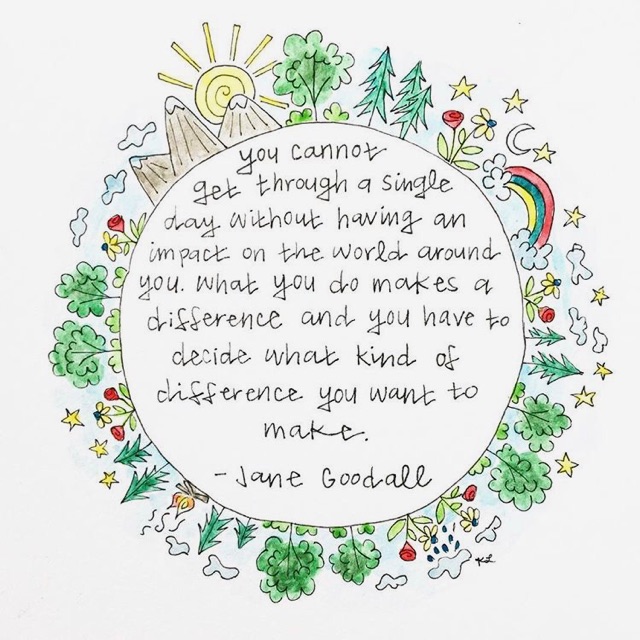 you cannot
get through a single
day without having an
impact on the world around
you. What you do makes a
difference and you have to
decide what kind of
difference you want to
make.
- Jane Goodall
KL